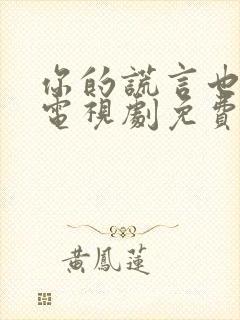 你的謊言也
電視劇免費
黃鳳蓮